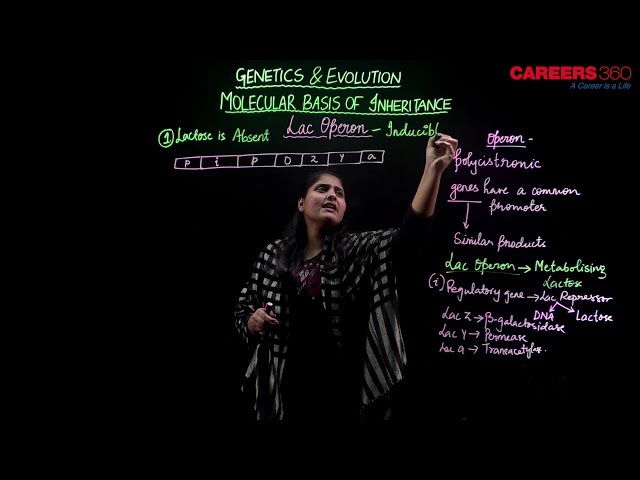 CAREERS360
A Career is a Life
GENETICS & EVOLUTION
MOLECULAR BASIS OF INHERITANCE
① Lactose is Absent Lac Operon - Inducibl
P i P O Z Y a
Operon -
polycistronic
genes have a common
promoter
Similar Products
Lac Operon → Metabolising
Lactose
(i) Regulatory gene → Lac Repressor
DNA Lactose
Lac Z → β-galactosidase
Lac Y → Permease
Lac a → Transacetylase.